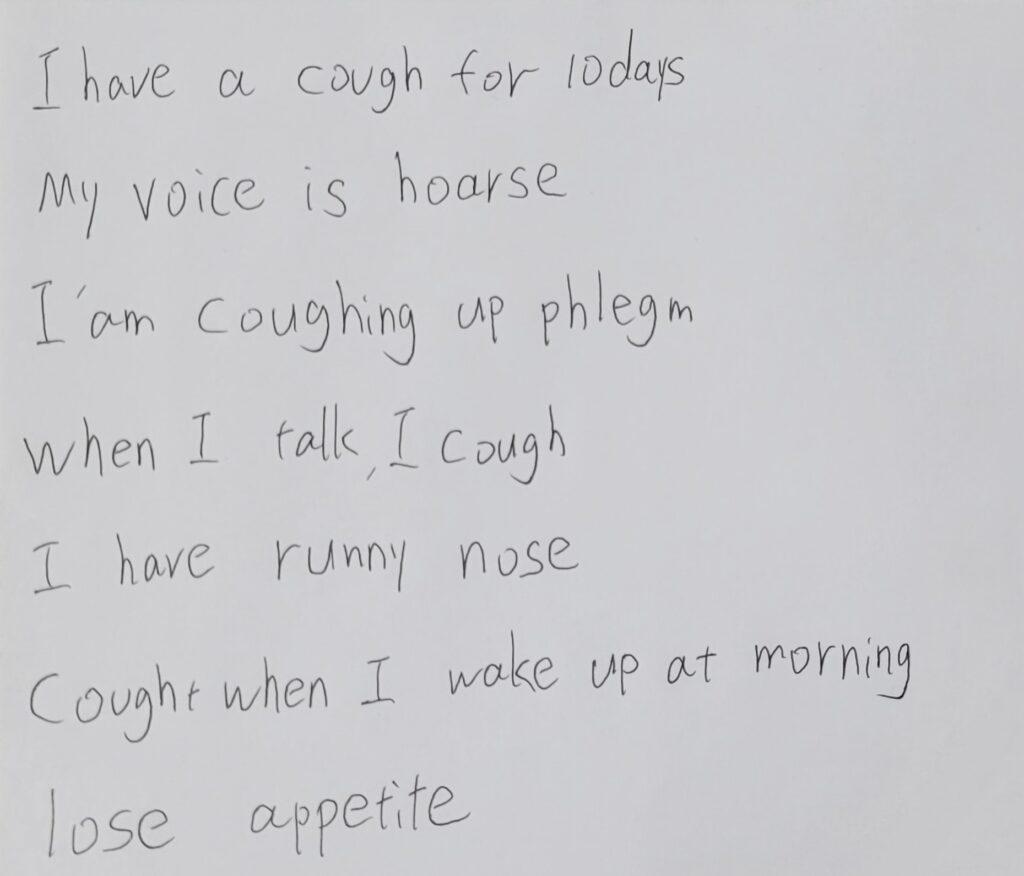 I have a cough for 10days
My voice is hoarse
I'am coughing up phlegm
when I talk, I cough
I have runny nose
Cought when I wake up at morning
lose appetite